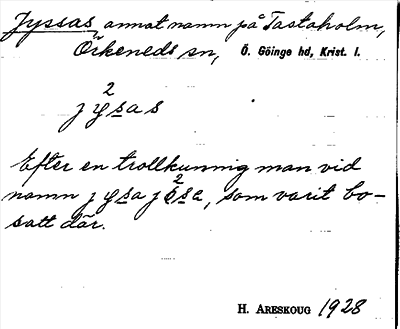 Jyssas, annat namn på Tastaholm,
Örkeneds sn, Ö. Göinge hd, Krist. l.
2
jysas
Efter en trollkunnig man vid
namn jysa j2öse, som varit bo-
satt där.
H. ARESKOUG 1928